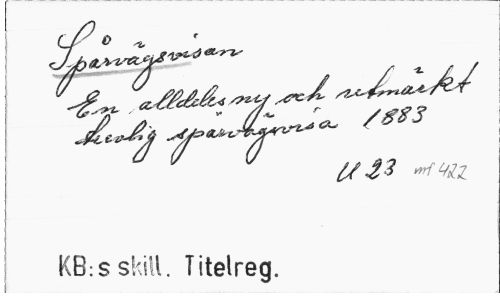 Spårvägsvisan
En alldeles ny och utmärkt
trevlig spårvägsvisa 1883
U 23 mf 422
KB:s skill. Titelreg.